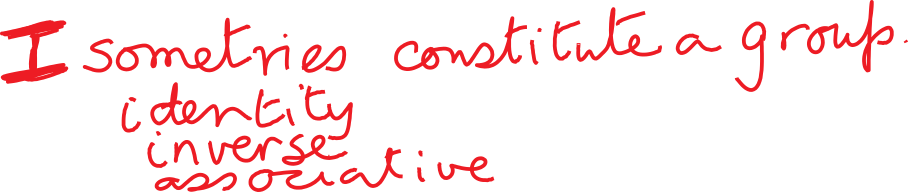 Isometries constitute a group.
identity
inverse
associative